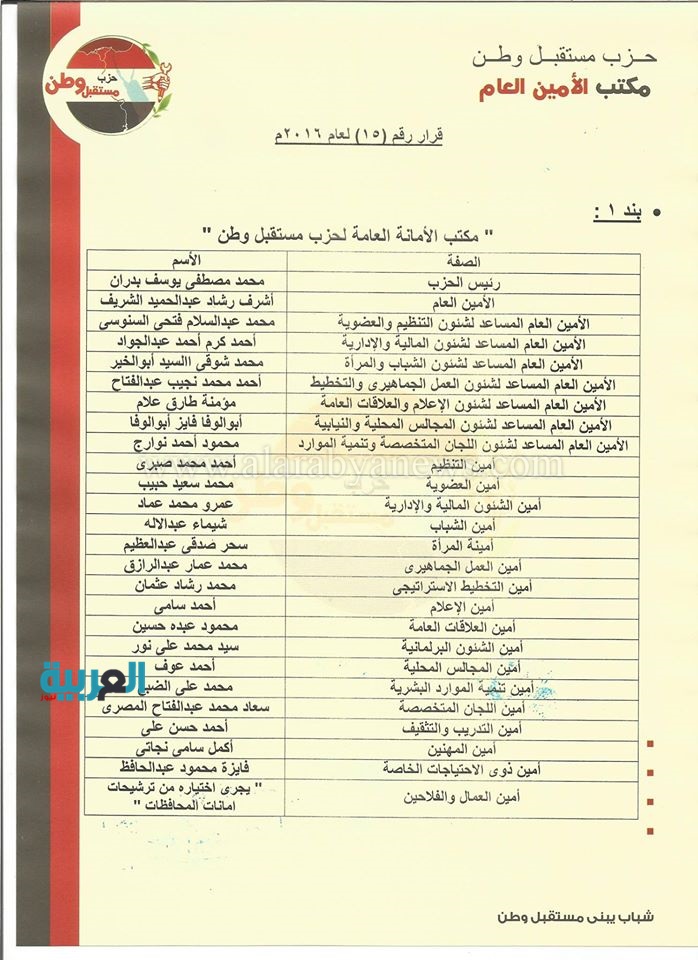 حزب مستقبل وطن
مكتب الأمين العام
حزب
مستقبل وطن
قرار رقم (١٥) لعام ٢٠١٦م
• بند ١ :
" مكتب الأمانة العامة لحزب مستقبل وطن "
الصفة الأسم
رئيس الحزب محمد مصطفى يوسف بدران
الأمين العام أشرف رشاد عبدالحميد الشريف
الأمين العام المساعد لشئون التنظيم والعضوية محمد عبدالسلام فتحى السنوسى
الأمين العام المساعد لشئون المالية والإدارية أحمد كرم أحمد عبدالجواد
الأمين العام المساعد لشئون الشباب والمرأة محمد شوقى االسيد أبوالخير
الأمين العام المساعد لشئون العمل الجماهيرى والتخطيط أحمد محمد نجيب عبدالفتاح
الأمين العام المساعد لشئون الإعلام والعلاقات العامة مؤمنة طارق علام
الأمين العام المساعد لشئون المجالس المحلية والنيابية أبوالوفا فايز أبوالوفا
الأمين العام المساعد لشئون اللجان المتخصصة وتنمية الموارد محمود أحمد نوارج
أمين التنظيم أحمد محمد صبرى
أمين العضوية محمد سعيد حبيب
أمين الشئون المالية والإدارية عمرو محمد عماد
أمين الشباب شيماء عبدالاله
أمينة المرأة سحر صدقى عبدالعظيم
أمين العمل الجماهيرى محمد عمار عبدالرازق
أمين التخطيط الاستراتيجى محمد رشاد عثمان
أمين الإعلام أحمد سامى
أمين العلاقات العامة محمود عبده حسين
أمين الشئون البرلمانية سيد محمد على نور
أمين المجالس المحلية أحمد عوف
أمين تنمية الموارد البشرية محمد على الضبع
أمين اللجان المتخصصة سعاد محمد عبدالفتاح المصرى
أمين التدريب والتثقيف أحمد حسن على
أمين المهنين أكمل سامى نجاتى
أمين ذوى الاحتياجات الخاصة فايزة محمود عبدالحافظ
أمين العمال والفلاحين " يجرى اختياره من ترشيحات
امانات المحافظات "
www.alarabyanews.com
العربية
نيوز
شباب يبنى مستقبل وطن